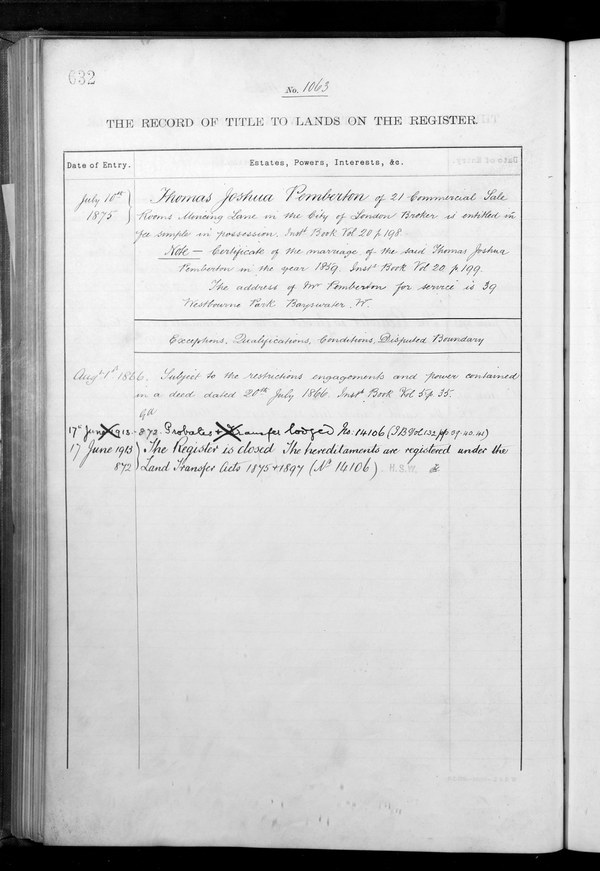 632
No. 1063
THE RECORD OF TITLE TO LANDS ON THE REGISTER.
Date of Entry.
Estates, Powers, Interests, &c.
July 10th
1875
Thomas Joshua Pemberton of 21 Commercial Sale
Rooms Mincing Lane in the City of London Broker is entitled in
fee simple in possession. Inst Book Vol 20 p 198
Note — Certificate of the marriage of the said Thomas Joshua
Pemberton in the year 1859. Inst Book Vol 20 p 199.
The address of Mr Pemberton for service is 39
Westbourne Park Bayswater. W.
Exceptions, Qualifications, Conditions, Disputed Boundary
Augt 1st 1866. Subject to the restrictions engagements and power contained
in a deed dated 20th July 1866. Inst Book Vol 5 p 35.
17th June 1913 - 872 - Probates & Transfer lodged No. 14106 (I.B. Vol. 132 pp. 39. 40. 41)
17 June 1913 The Register is closed The hereditaments are registered under the
872 Land Transfer Acts 1875 & 1897 (No 14106) H.S.W.